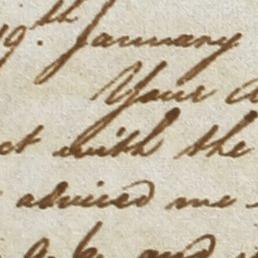 19.th January
Your
ct with the
adviced me
and